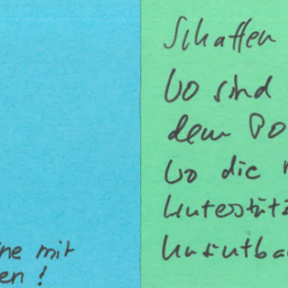 ne mit
en!
Schaffen
Wo sind
dem Po
wo die
Unterstütz